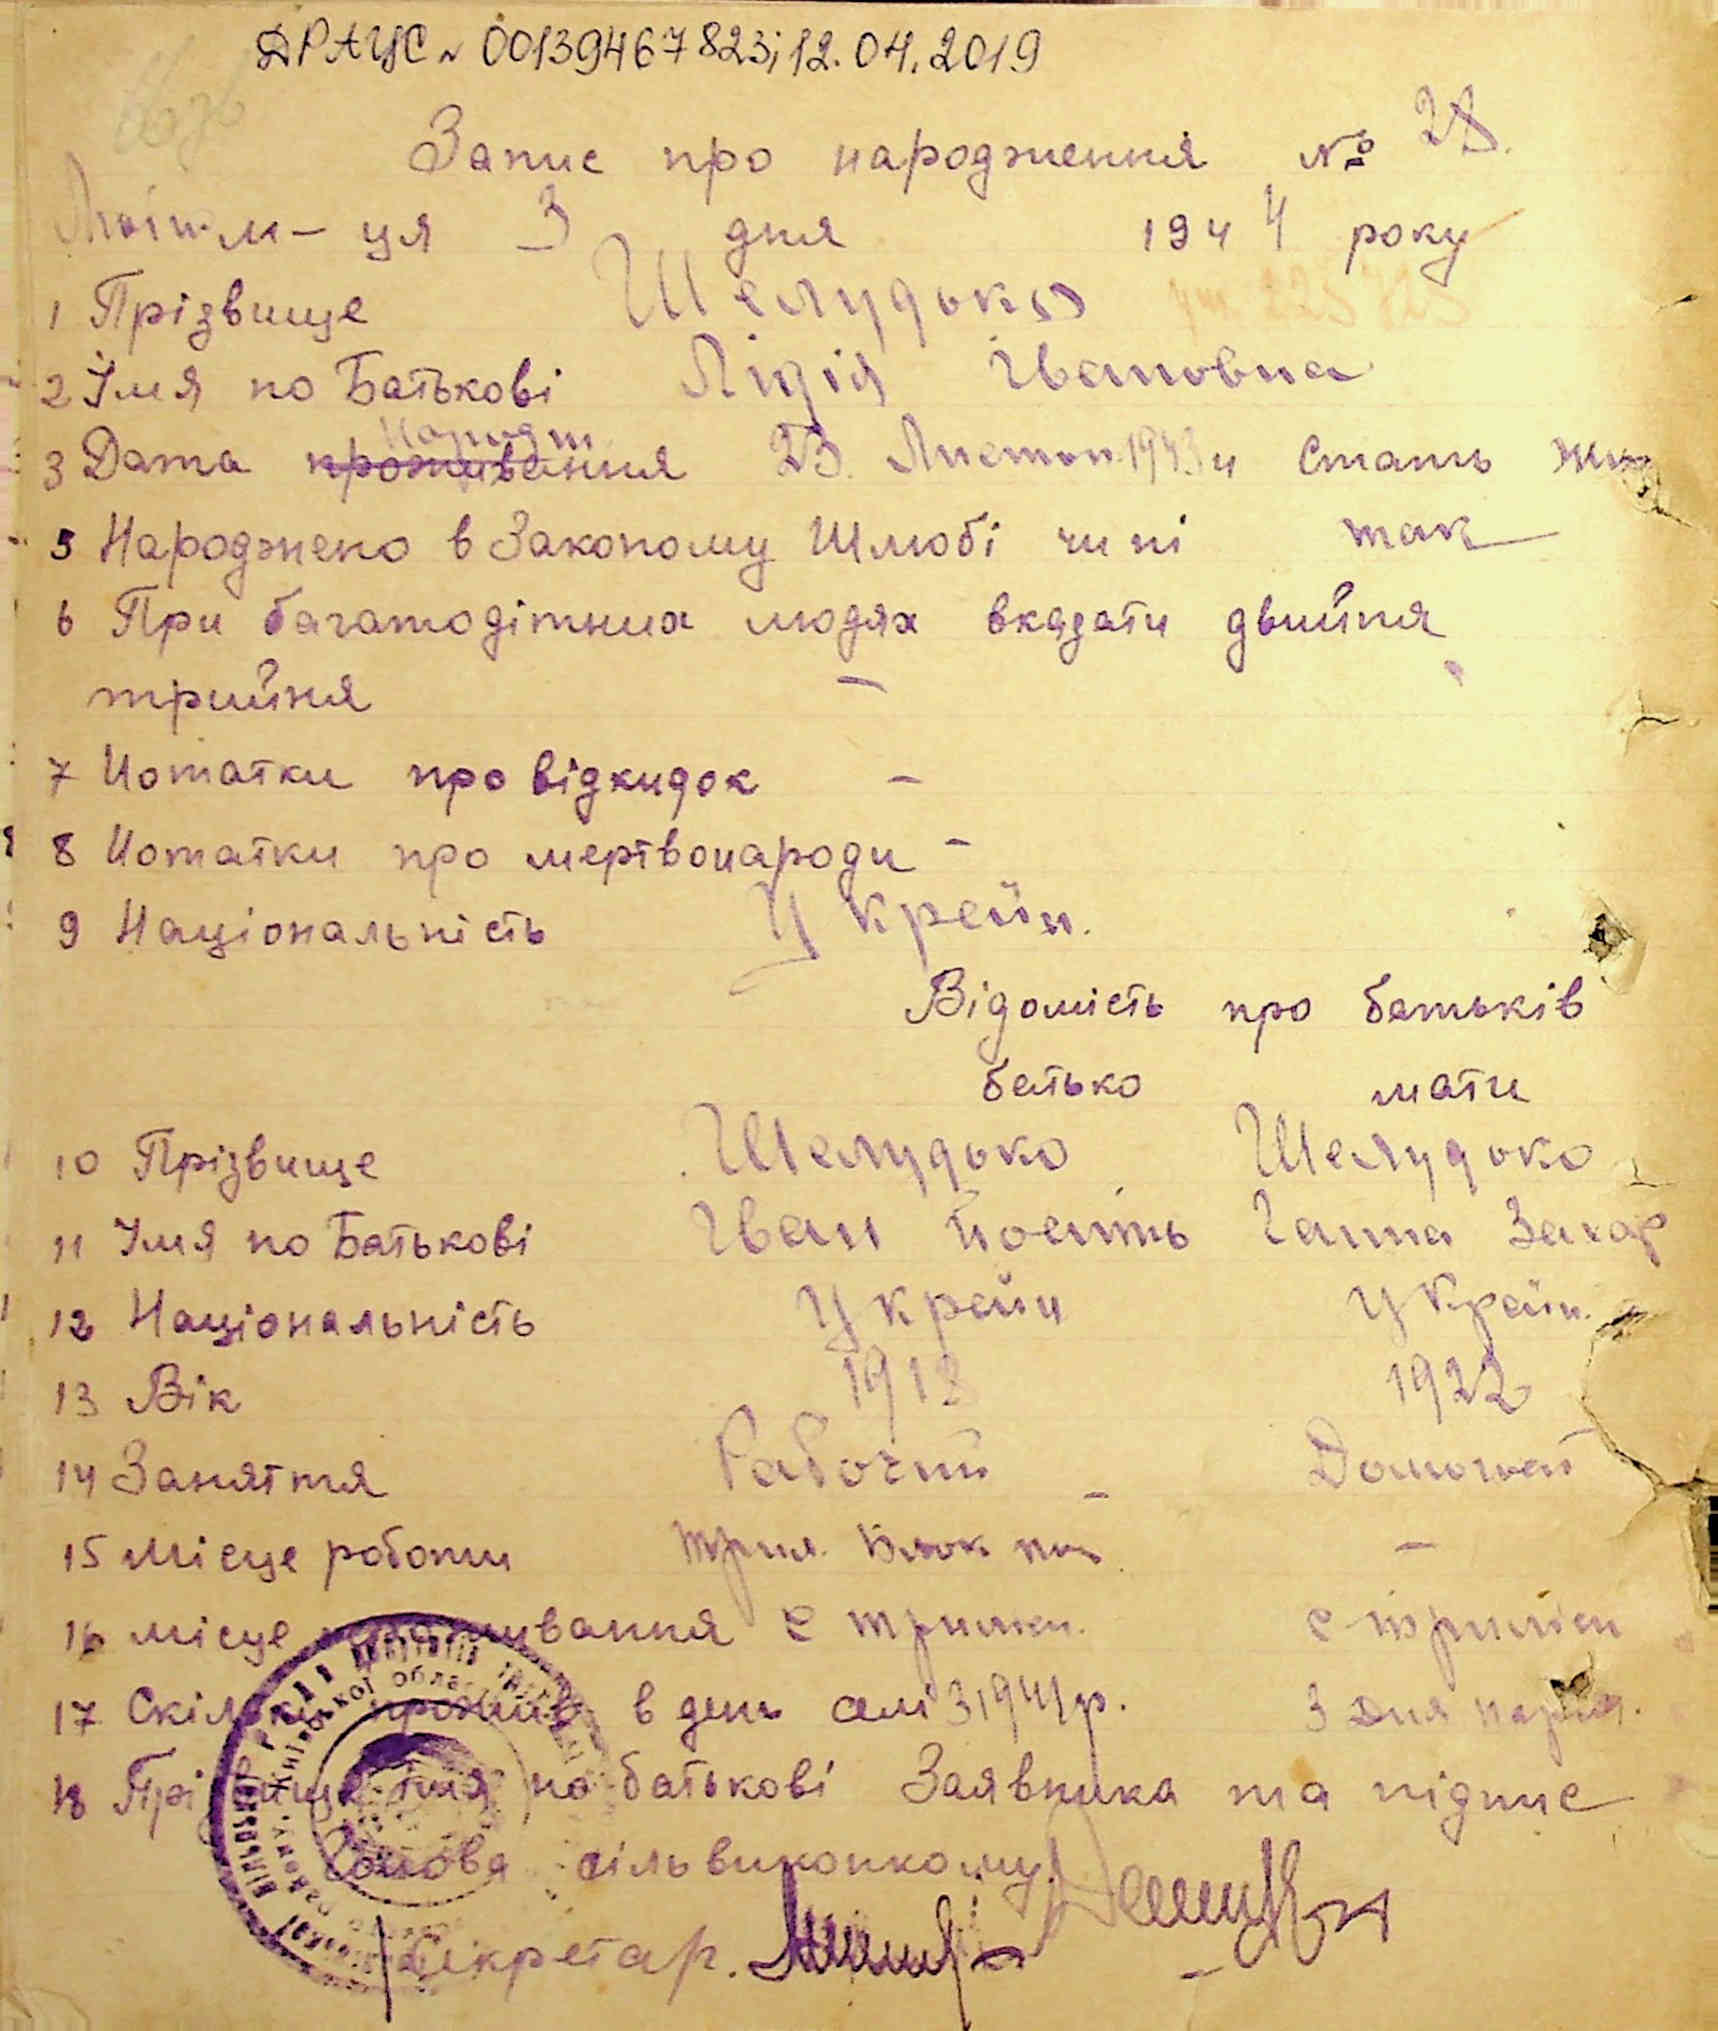 ДРАЦС № 00139467823; 12.04.2019
Запис про народження № 28.
м-ця 3 дня 1944 року
1 Прізвище Шелудько
2 Імя по Батькові Лідія Івановна
3 Дата проживання Народж 23. Листоп. 1943 Стать жін
5 Народжено в Законому Шлюбі чи ні так
6 При багатодітних людях вказати двийня
трийня –
7 Нотатки про відкидок –
8 Нотатки про мертвонароди –
9 Національність Україн.
Відомість про батьків
батько мати
10 Прізвище Шелудько Шелудько
11 Імя по Батькові Іван Ганна Захар
12 Національність Україн Україн.
13 Вік 1918 1922
14 Заняття Рабочий – Домохоз
15 Місце роботи –
16 місце проживання с с
17 Скільки прожив в день 3 дня
18 Прізвище імя по батькові Заявника та підпис
Голова сільвиконкому
Секретар.